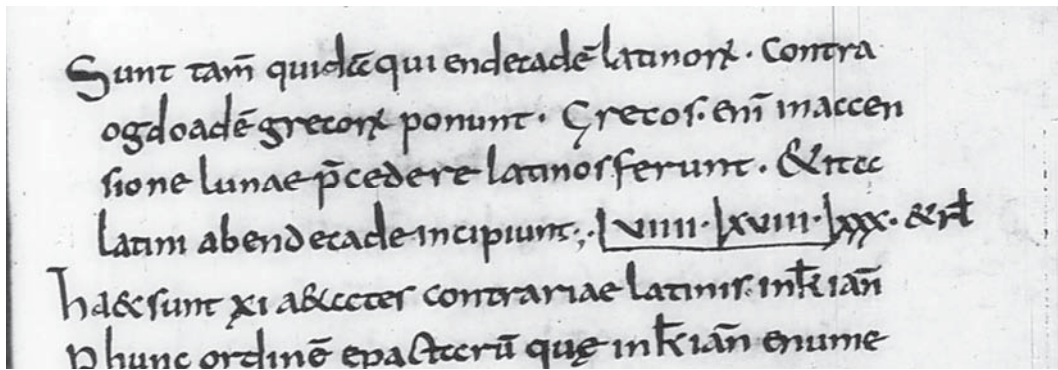 Sunt tam̄ quidā qui endecadē latinorꝝ. Contra
ogdoadē grecorꝝ ponunt. Grecos. eni̅ in accen
sione lunae p̄cedere latinos ferunt. & ita
latini ab endecade incipiunt;. VIIII. XVIII. XXX. & rł
hae sunt xi aetates contrariae latinis. in kł ian̄
hunc ordinē epactarū quę in kł ian̄ enume